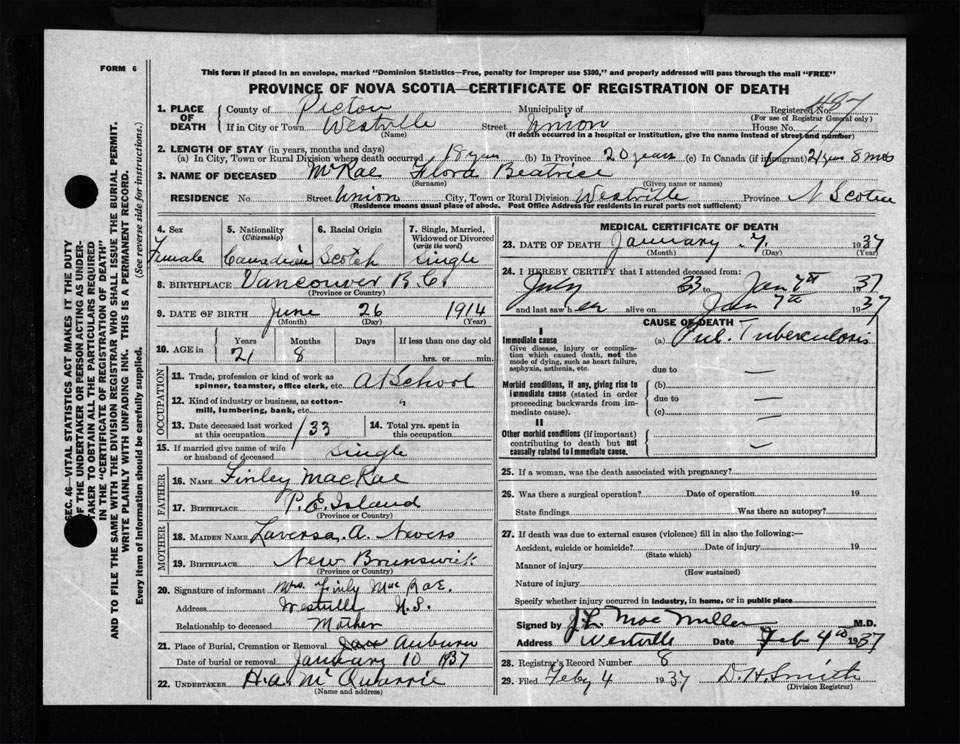 FORM 6
This form if placed in an envelope, marked "Dominion Statistics—Free, penalty for improper use $300," and properly addressed will pass through the mail "FREE"
PROVINCE OF NOVA SCOTIA—CERTIFICATE OF REGISTRATION OF DEATH
1. PLACE OF DEATH
County of Pictou Municipality of Registered No.
(For use of Registrar General only)
If in City or Town Westville Street Union House No.
(Name) (If death occurred in a hospital or institution, give the name instead of street and number)
2. LENGTH OF STAY (in years, months and days)
(a) In City, Town or Rural Division where death occurred 18 yrs (b) In Province 20 years (c) In Canada (if immigrant) 21 yrs 8 mos
3. NAME OF DECEASED McRae Flora Beatrice
(Surname) (Given name or names)
RESIDENCE No. Street Union City, Town or Rural Division Westville Province N Scotia
(Residence means usual place of abode. Post Office Address for residents in rural parts not sufficient)
4. Sex Female
5. Nationality (Citizenship) Canadian
6. Racial Origin Scotch
7. Single, Married, Widowed or Divorced (write the word) Single
8. BIRTHPLACE Vancouver B.C.
(Province or Country)
9. DATE OF BIRTH June 26 1914
(Month) (Day) (Year)
10. AGE in Years Months Days If less than one day old
21 8 hrs. or min.
OCCUPATION
11. Trade, profession or kind of work as spinner, teamster, office clerk, etc. At School
12. Kind of industry or business, as cotton-mill, lumbering, bank, etc. "
13. Date deceased last worked at this occupation /33
14. Total yrs. spent in this occupation
15. If married give name of wife or husband of deceased Single
FATHER
16. NAME Finley MacRae
17. BIRTHPLACE P.E. Island
(Province or Country)
MOTHER
18. MAIDEN NAME Laversa. A. Nevers
19. BIRTHPLACE New Brunswick
(Province or Country)
20. Signature of informant Mrs. Finly MacRae.
Address Westville N.S.
Relationship to deceased Mother
21. Place of Burial, Cremation or Removal Auburn
Date of burial or removal January 10 1937
22. UNDERTAKER H.A. McQuarrie
(Name and address)
MEDICAL CERTIFICATE OF DEATH
23. DATE OF DEATH January 7. 1937
(Month) (Day) (Year)
24. I HEREBY CERTIFY that I attended deceased from:
July 33 to Jan 7th 1937
and last saw her alive on Jan 7th 1937
CAUSE OF DEATH
I
Immediate cause
Give disease, injury or complication which caused death, not the mode of dying, such as heart failure, asphyxia, asthenia, etc.
(a) Pul. Tuberculosis
due to —
Morbid conditions, if any, giving rise to immediate cause (stated in order proceeding backwards from immediate cause).
(b)
due to —
(c)
II
Other morbid conditions (if important) contributing to death but not causally related to immediate cause.
—
25. If a woman, was the death associated with pregnancy?
26. Was there a surgical operation? Date of operation 19
State findings Was there an autopsy?
27. If death was due to external causes (violence) fill in also the following:—
Accident, suicide or homicide? Date of injury 19
(State which)
Manner of injury
(How sustained)
Nature of injury
Specify whether injury occurred in industry, in home, or in public place
Signed by J.L. MacMillan M.D.
Address Westville Date Feb 4th 1937
28. Registrar's Record Number 8
29. Filed Feby 4 1937 D.H. Smith
(Division Registrar)
SEC. 46—VITAL STATISTICS ACT MAKES IT THE DUTY
OF THE UNDERTAKER OR PERSON ACTING AS UNDER-
TAKER TO OBTAIN ALL THE PARTICULARS REQUIRED
IN THE "CERTIFICATE OF REGISTRATION OF DEATH"
AND TO FILE THE SAME WITH THE DIVISION REGISTRAR WHO SHALL ISSUE THE BURIAL PERMIT.
WRITE PLAINLY WITH UNFADING INK. THIS IS A PERMANENT RECORD.
Every item of Information should be carefully supplied. (See reverse side for instructions.)